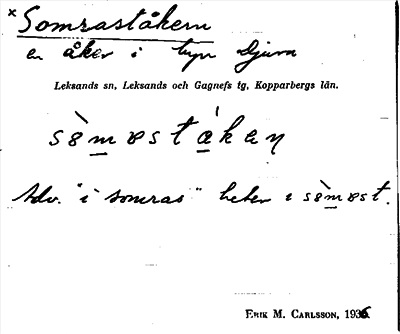 × Somraståkern
en åker i byn Djura
Leksands sn, Leksands och Gagnefs tg, Kopparbergs län.
sòmɵståkeɳ
Adv. "i somras" heter i sòmɵst.
ERIK M. CARLSSON, 1936.